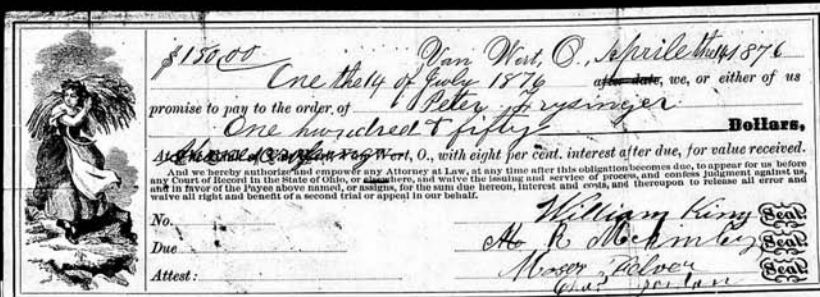 $150.00 Van Wert, O., Aprile the 14 1876
One the 14 of July 1876 after date, we, or either of us
promise to pay to the order of Peter Frysinger
One hundred & fifty Dollars,
At Wert, O., with eight per cent. interest after due, for value received.
And we hereby authorize and empower any Attorney at Law, at any time after this obligation becomes due, to appear for us before
any Court of Record in the State of Ohio, or elsewhere, and waive the issuing and service of process, and confess judgment against us,
and in favor of the Payee above named, or assigns, for the sum due hereon, interest and costs, and thereupon to release all error and
waive all right and benefit of a second trial or appeal in our behalf.
No. William King Seal
Due R McKinley Seal
Attest: Moser Seal